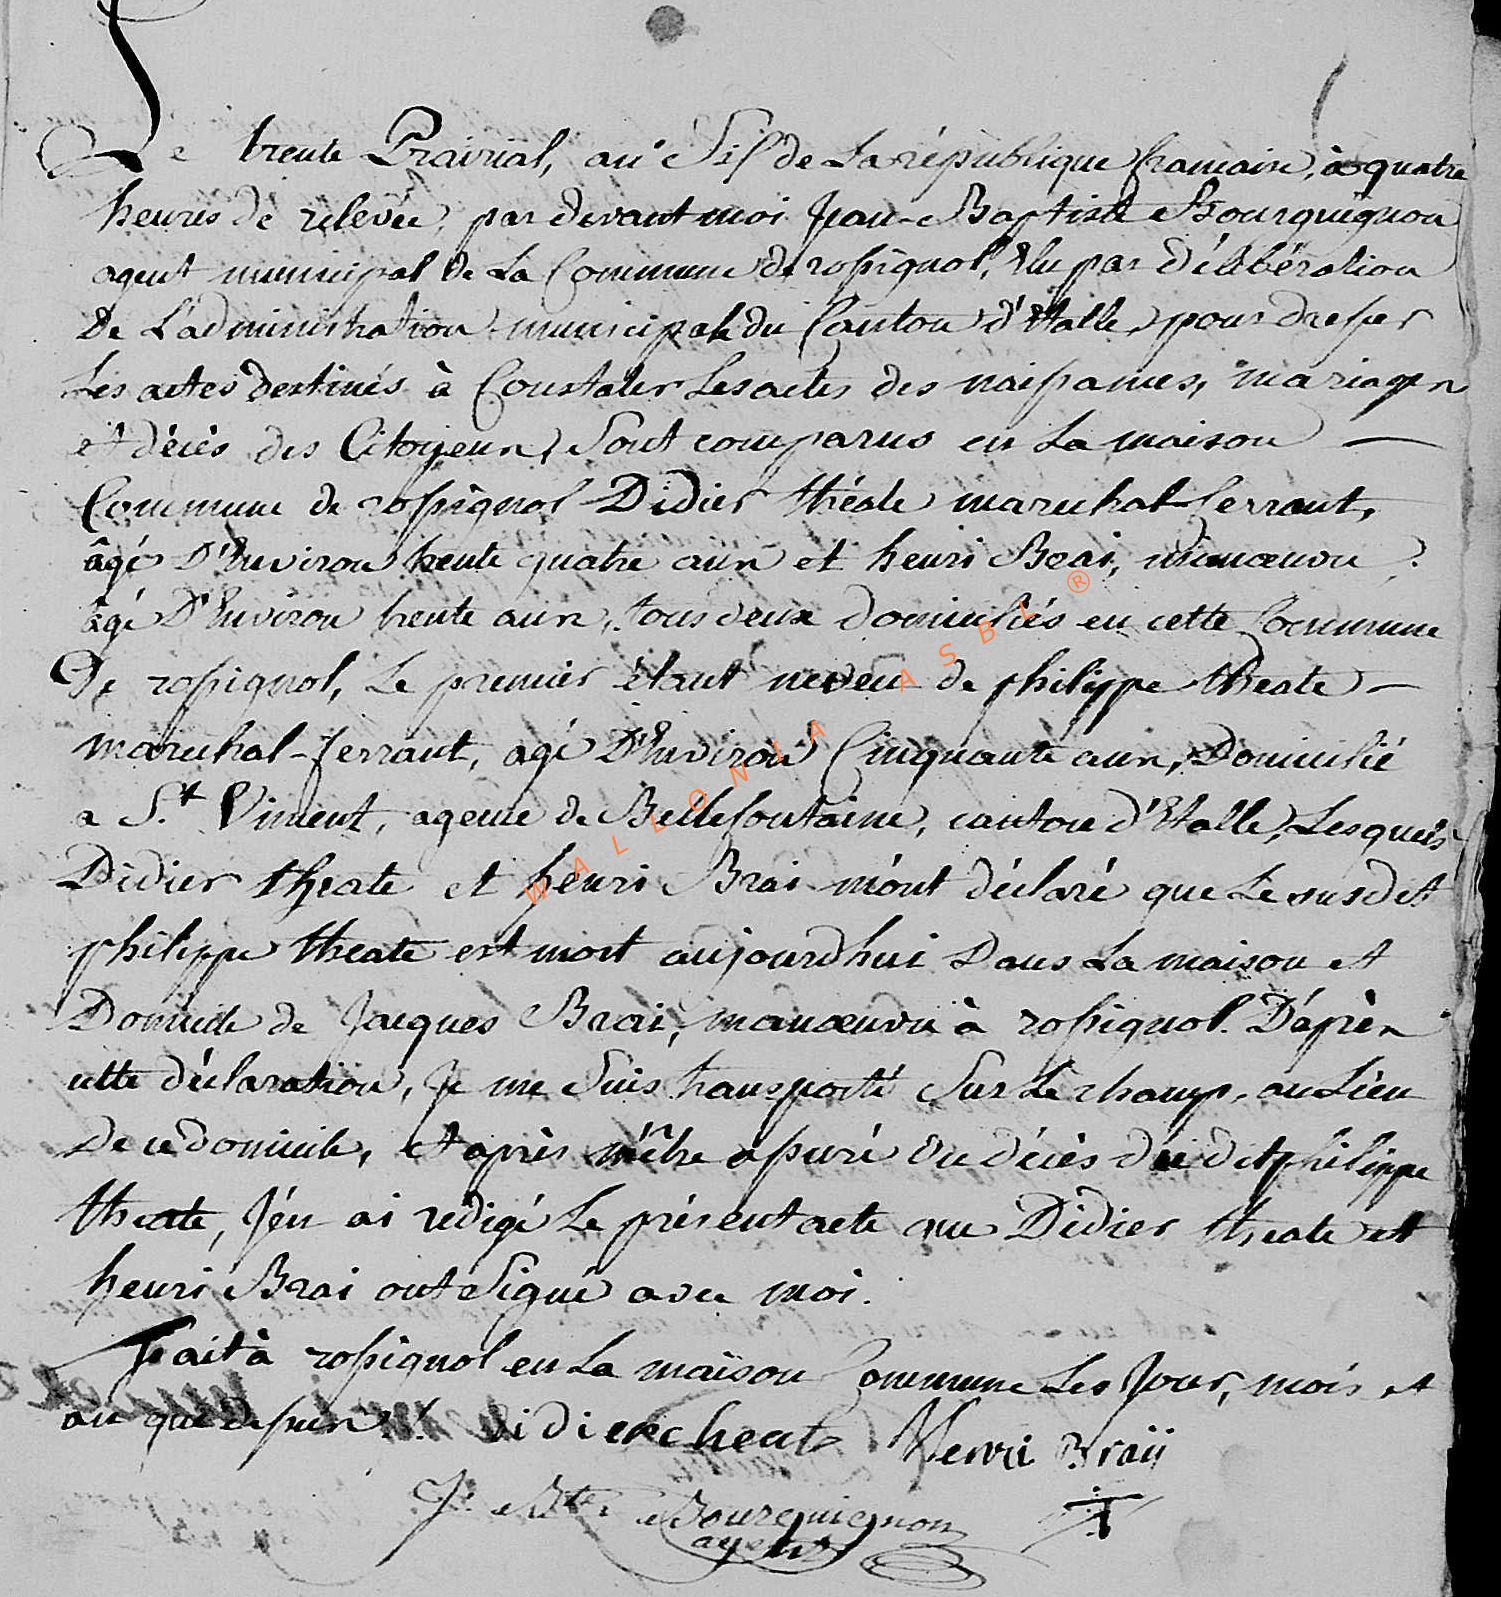 Le trente Prairial, an Six de La république francaise, à quatre
heures de relevée, par devant moi Jean-Baptiste Bourguignon
agent municipal de La Commune de rossignol, Elu par délibération
De L'administration municipale du Canton d'Etalle, pour dresser
Les actes destinés à Constater Les actes des naissances, mariages
et décès des Citoyens, Sont comparus en La maison —
Commune de rossignol Didier théate marechal ferrant,
âgé D'Environ trente quatre ans et henri Brai, manoeuvre,
âgé D'Environ trente ans, tous deux domiciliés en cette Commune
De rossignol, Le premier étant neveu de philippe theate —
marechal-ferrant, agé D'Environ Cinquante ans, Domicilié
a St. Vincent, agence de Bellefontaine, canton d'Etalle, Lesquels
Didier theate et henri Brai m'ont déclaré que Le susdit
philippe theate est mort aujourdhui Dans La maison et
Domicile de Jacques Brai, manoeuvre à rossignol. D'après
cette déclaration, Je me Suis transporté Sur Le champ, au Lieu
De ce domicile, et après m'être assuré du décès du dit philippe
theate, J'en ai redigé Le présent acte que Didier theate et
henri Brai ont Signé avec moi.
Fait à rossignol en La maison Commune Les Jour, mois et
an que dessus. didier theate Henri Braii
Jn. Bte. Bourguignon
agent
WALLONIA ASBL ®